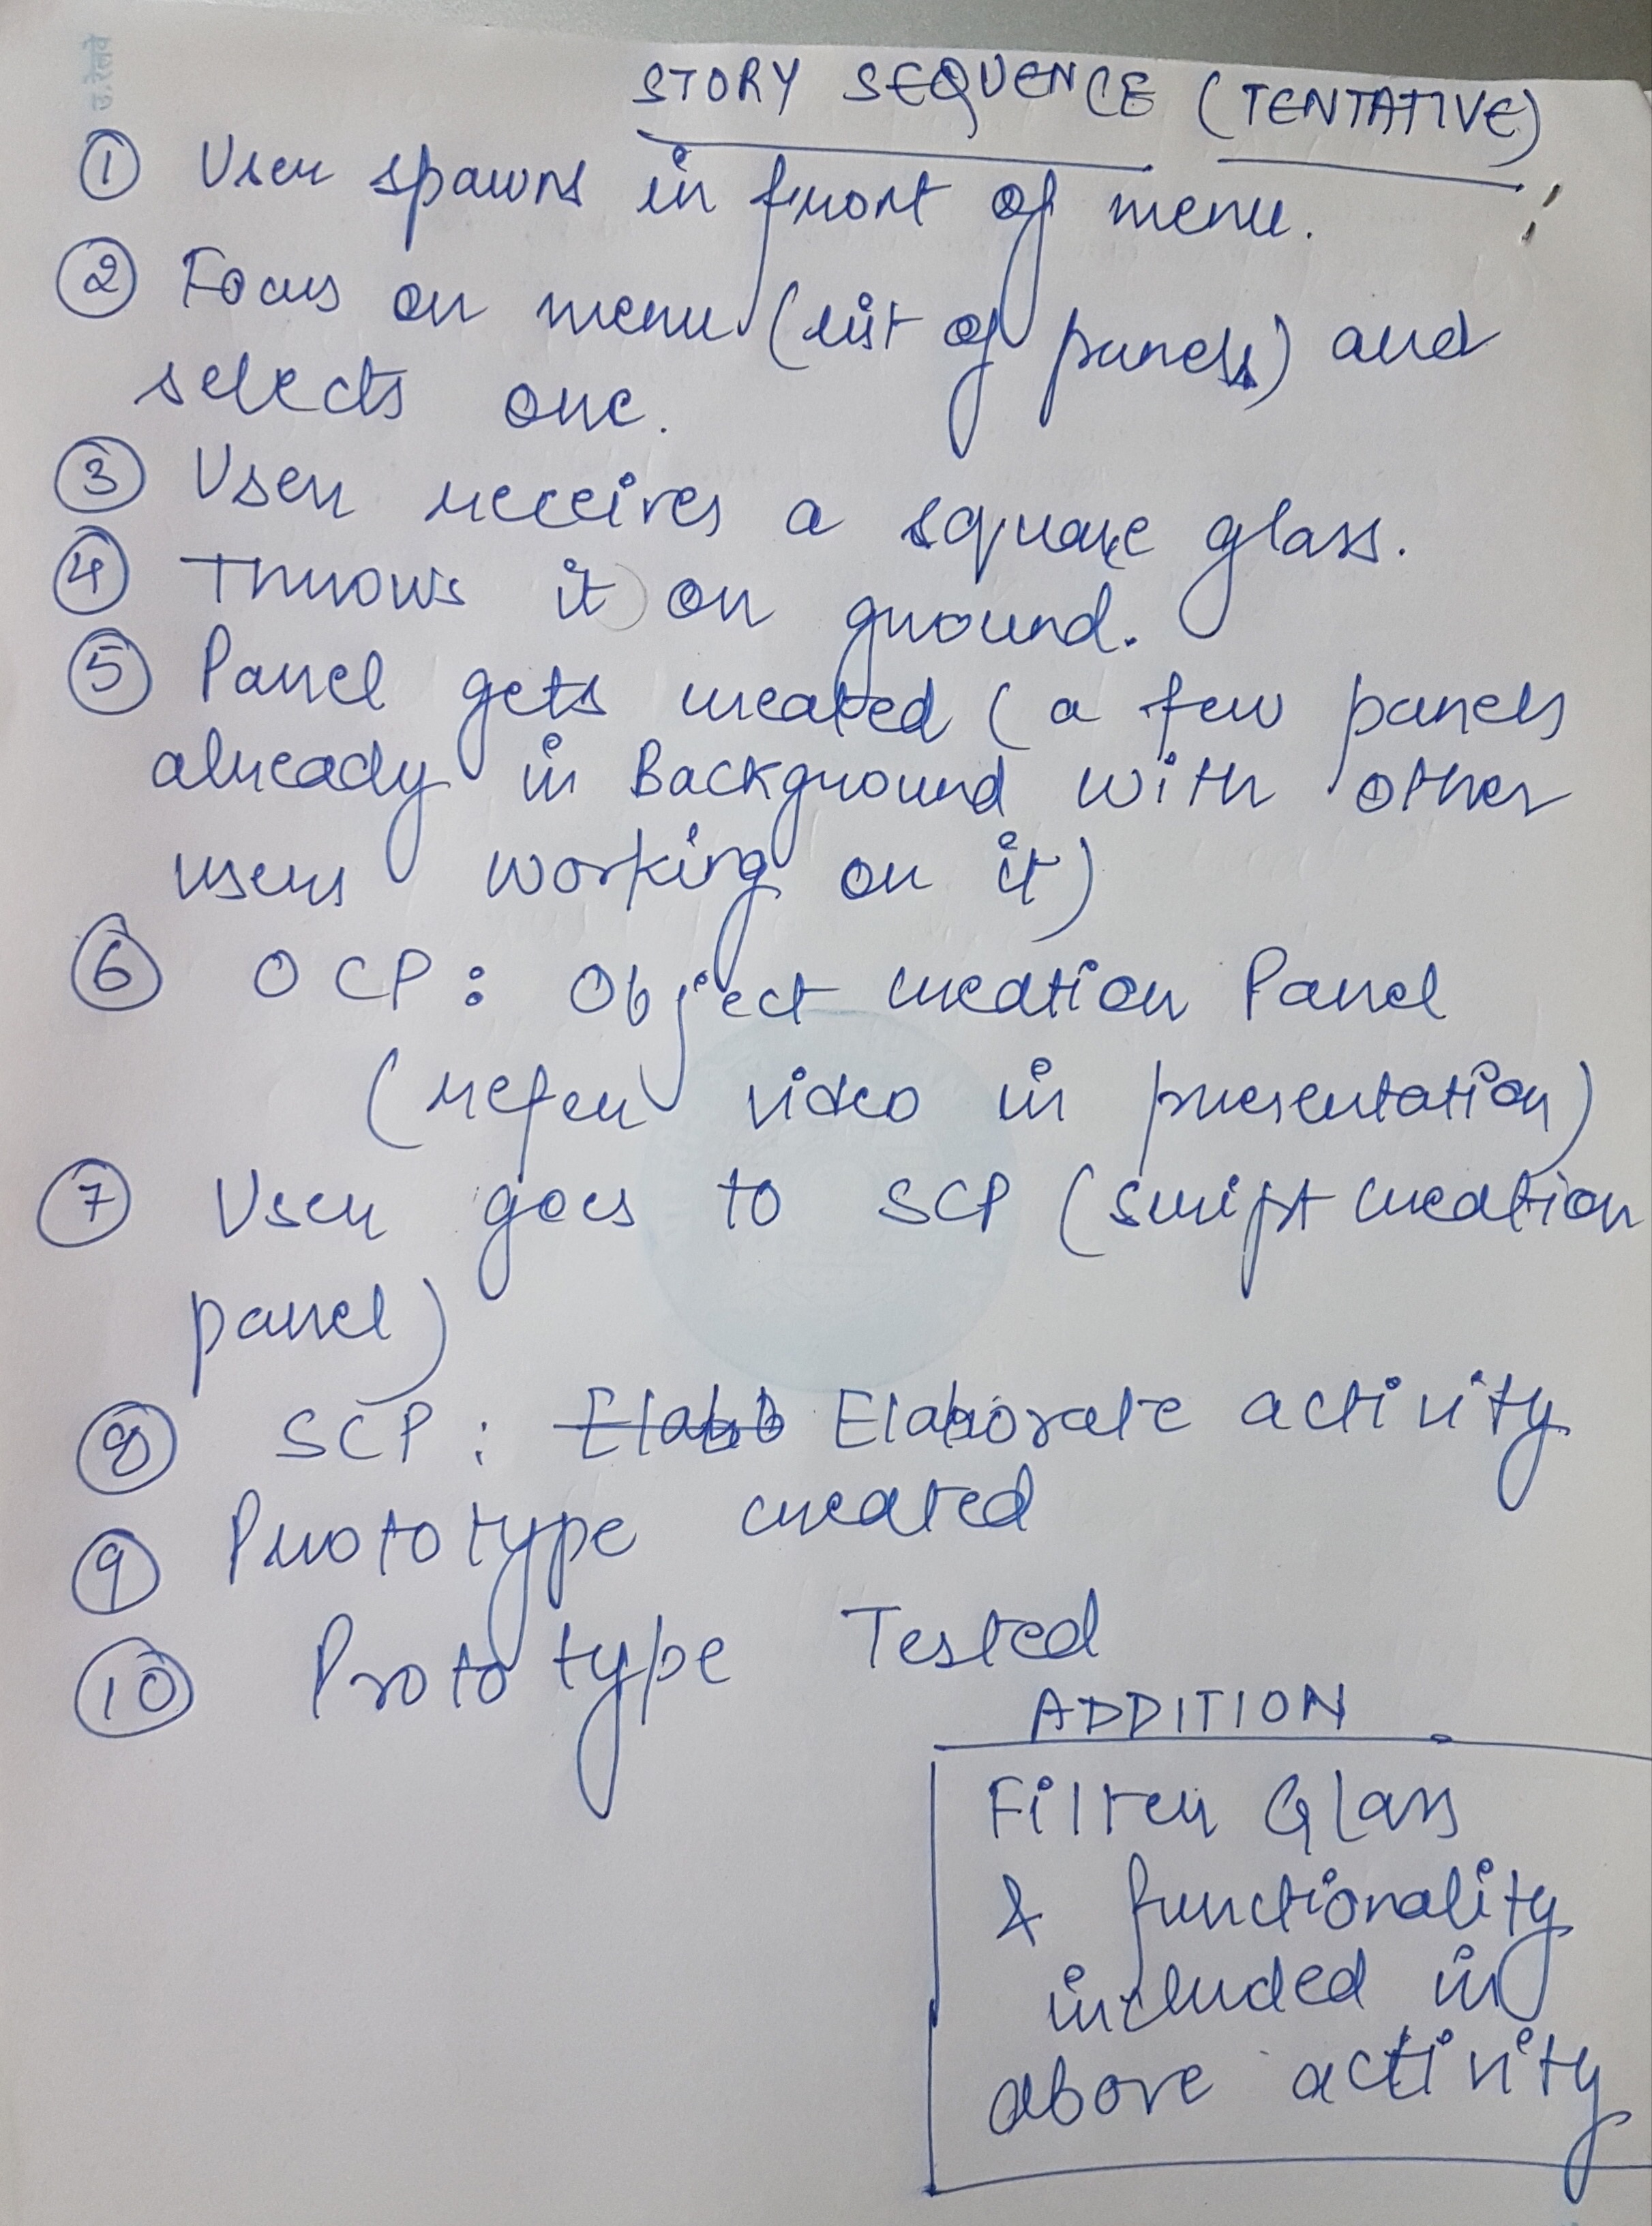 उ.रेलवे
STORY SEQUENCE (TENTATIVE)
① User spawns in front of menu.
② Focus on menu (list of panels) and
selects one.
③ User receives a square glass.
④ Throws it on ground.
⑤ Panel gets created (a few panels
already in Background with other
users working on it)
⑥ OCP : Object creation Panel
(refer video in presentation)
⑦ User goes to SCP (script creation
panel)
⑧ SCP : Elabb Elaborate activity
⑨ Prototype created
⑩ Prototype Tested
ADDITION
Filter Glass
& functionality
included in
above activity